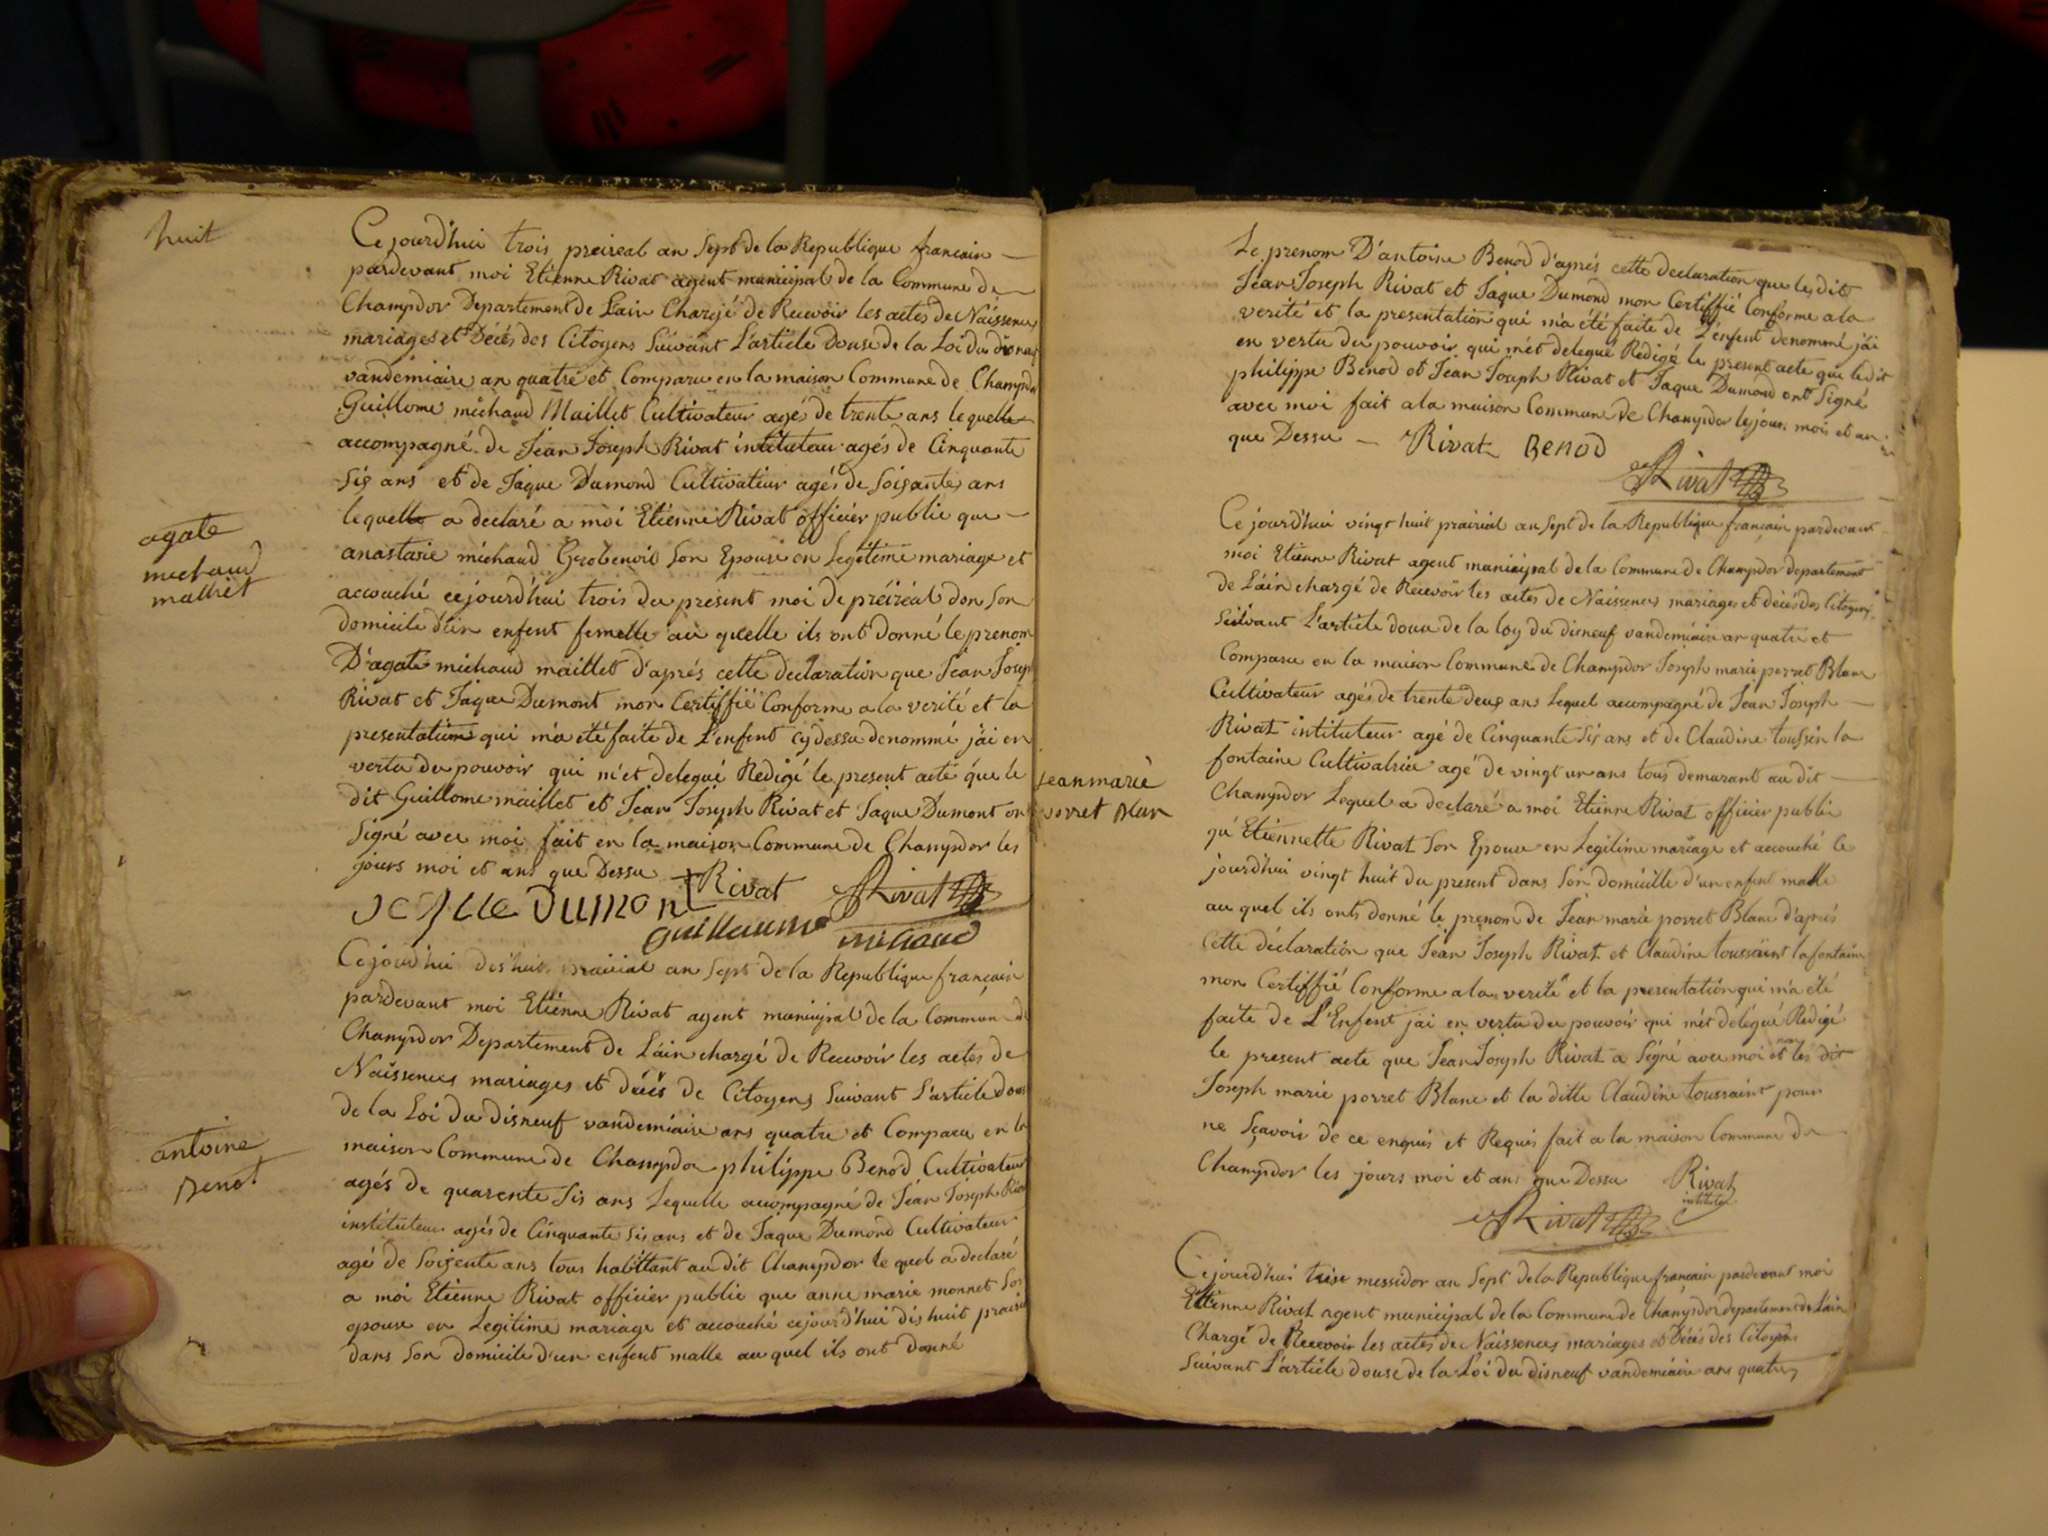 huit
Ce jourd'hui trois preireal an Sept de la Republique francain
pardevant moi Etienne Rivat agent municipal de la Commune de
Champdor Departement de Lain Chargé de Recevoir les actes de Naissence
mariages et Décés des Citoyens Suivant L'article Douse de la Loi du
vandemiaire an quatre et Comparu en la maison Commune de Champdor
Guillome michaud Maillet Cultivateur agé de trente ans lequelle
accompagné de Jean Joseph Rivat intituteur agés de Cinquante
Sis ans et de Jaque Dumond Cultivateur agés de Soisante ans
lequelle a declaré a moi Etienne Rivat officier public que
agate
michaud
malliet
anastasie michaud Grobenoid Son Epouse en Legitime mariage et
accouché cejourd'hui trois du présent moi de préiréal don Son
domicile d'un enfent femelle au quelle ils ont donné le prenom
D'agate michaud maillet d'aprés cette declaration que Jean Joseph
Rivat et Jaque Dumont mon Certiffié Conforme a la verité et la
presentation qui m'a été faite de L'enfent cy dessu denommé j'ai en
vertu du pouvoir qui m'et delegué Redigé le present acte que le
dit Guillome maillet et Jean Joseph Rivat et Jaque Dumont on
Signé avec moi fait en la maison Commune de Champdor les
jours moi et ans que Dessu Rivat
Dumon Rivat
guillaume michaud
Ce jourd'hui dis'huit prairial an Sept de la Republique francain
pardevant moi Etienne Rivat agent municipal de la Commune de
Champdor Departement de Láin chargé de Recevoir les actes de
Naissences mariages et décés de Citoyens Suivant L'article douse
de la Loi du disneuf vandemiaire ans quatre et Comparu en la
antoine
Benot
maison Commune de Champdor philippe Benod Cultivateur
agés de quarente Sis ans Lequelle accompagné de Jean Joseph Rivat
instituteur agés de Cinquante Sis ans et de Jaque Dumond Cultivateur
agé de Soisente ans tous habittant au dit Champdor le quel a declaré
a moi Etienne Rivat officier public que anne marie monnet Son
epouse en Legitime mariage et accouché cejourd'hui dis huit prairial
dans Son domicile d'un enfent malle au quel ils ont donné
Le prenom D'antoine Benod d'aprés cette declaration que les dit
Jean Joseph Rivat et Jaque Dumond mon Certiffié Conforme a la
verité et la presentation qui m'a été faite de L'enfent denommé j'ai
en vertu du pouvoir qui m'ét delegué Redigé le present acte que le dit
philippe Benod et Jean Joseph Rivat et Jaque Dumond ont Signé
avec moi fait a la maison Commune de Champdor les jour mois et an
que Dessu Rivat Benod
Rivat
Ce jourd'hui vingt huit prairial an Sept de la Republique francain pardevant
moi Etienne Rivat agent municipal de la Commune de Champdor departement
de Láin chargé de Recevoir les actes de Naissences mariages et décés des Citoyens
Suivant L'article douse de la loy du disneuf vandemiaire an quatre et
Comparu en la maison Commune de Champdor Joseph marie perret Blanc
Cultivateur agés de trente deux ans Lequel accompagné de Jean Joseph
Rivat intituteur agé de Cinquante Sis ans et de Claudine toussin la
fontaine Cultivatrice agé de vingt un ans tous demurant au dit
jeanmarie
porret blan
Champdor Lequel a declaré a moi Etienne Rivat officier public
qu'Etiennette Rivat Son Epouse en Legitime mariage et accouché le
jourd'hui vingt huit du present dans Son domicille d'un enfent malle
au quel ils onts donné le prenom de Jean marie porret Blanc d'aprés
Cette déclaration que Jean Joseph Rivat et Claudine toussaint lafontaine
mon Certiffié Conforme a la verité et la presentation qui m'a été
faite de L'Enfent j'ai en vertu du pouvoir qui m'ét delégué Redigé
le present acte que Jean Joseph Rivat a Signé avec moi et non les dit
Joseph marie porret Blanc et la ditte Claudine toussaint pour
ne Sçavoir de ce enquis et Requis fait a la maison Commune de
Champdor les jours moi et ans que Dessu Rivat
intituteur
Rivat
Ce jourd'hui trise messidor an Sept de la Republique francain pardevant moi
Etienne Rivat agent municipal de la Commune de Champdor departement de Láin
Chargé de Recevoir les actes de Naissences mariages et Décés des Citoyens
Suivant L'article douse de la Loi du disneuf vandemiaire ans quatre